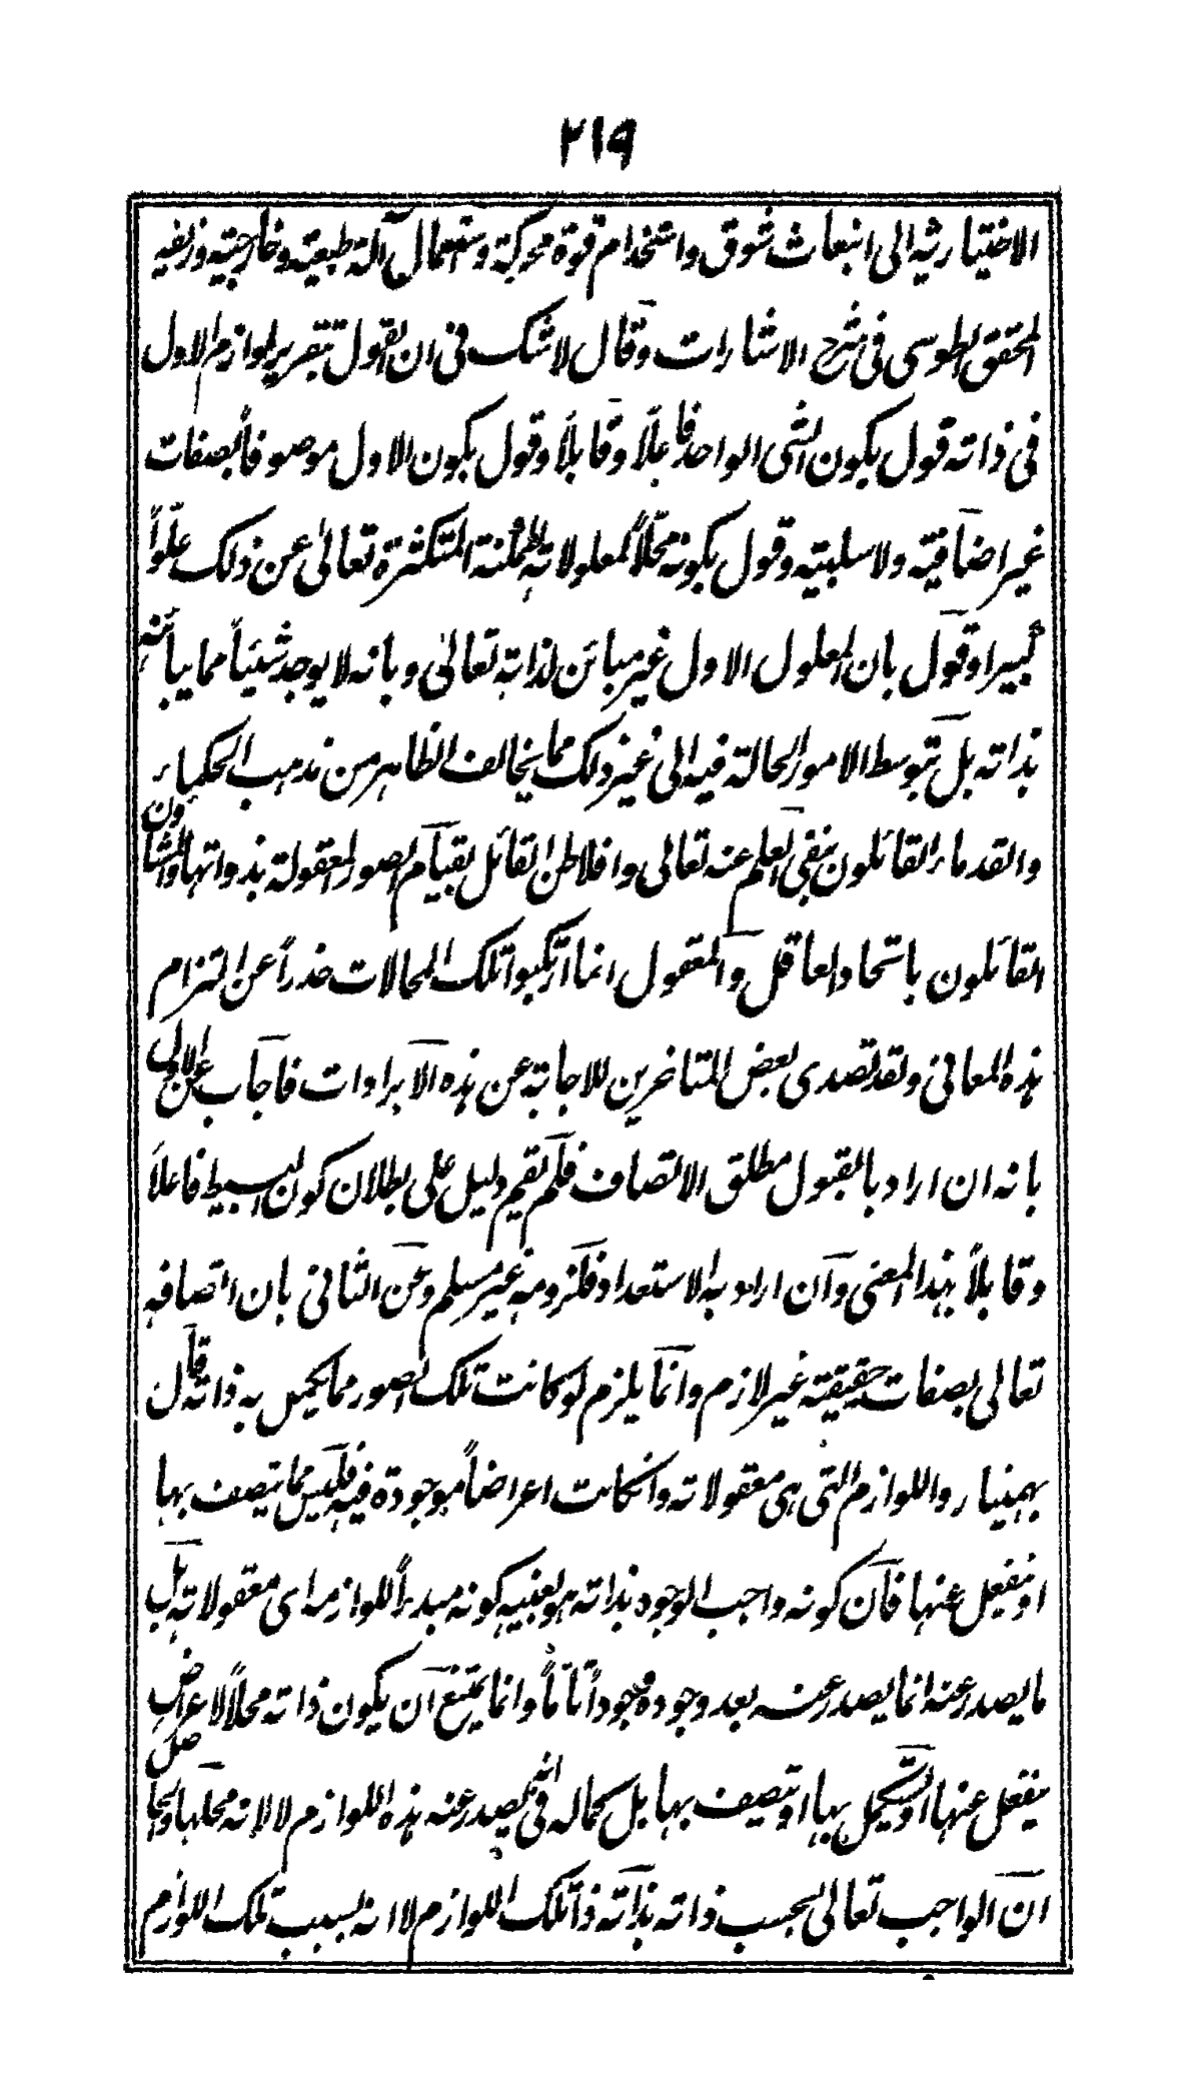 ٢١٩
الاختيارية الى انبعاث شوق واستخدام قوة محركة واستعمال آلة طبيعية وخارجية وزيفه
المحقق الطوسى فى شرح الاشارات وقال لاشك فى ان القول بتقرير لوازم الاول
فى ذاته قول بكون الشى الواحد فاعلاً وقابلاً وقول بكون الاول موصوفاً بصفات
غير اضافية ولا سلبية وقول بكونه محلاً لمعلولاته الممكنة المتكثرة تعالىٰ عن ذلك علواً
كبيرا وقول بان المعلول الاول غير مبائن لذاته تعالىٰ وبانه لا يوجد شيئاً مما يبائنه
بذاته بل بتوسط الامور الحالة فيه الى غير ذلك مما يخالف الظاهر من مذهب الحكماء
والقدماء القائلون بنفى العلم عنه تعالى وافلاطن القائل بقيام الصور المعقولة بذواتها والمشاؤن
القائلون باتحاد العاقل والمعقول انما ارتكبوا تلك المحالات حذراً عن التزام
هذه المعانى ولقد تصدى بعض المتاخرين للاجابة عن هذه الايرادات فاجاب عن الاول
بانه ان اراد بالقبول مطلق الاتصاف فلم يقم دليل على بطلان كون البسيط فاعلاً
وقابلاً بهذا المعنى وان اراد به الاستعداد فلزومه غير مسلم وعن الثانى بان اتصافه
تعالى بصفات حقيقية غير لازم وانما يلزم لو كانت تلك الصور مما يكمل به ذاته قال
بهمنيار واللوازم التى هى معقولاته وانكانت اعراضاً موجودة فيه فليس مما يتصف بها
او ينفعل عنها فان كونه واجب الوجود بذاته هو بعينه كونه مبدءاً للوازمه اى معقولاته بل
ما يصدر عنه انما يصدر عنه بعد وجوده وجوداً تاماً وانما يمتنع ان يكون ذاته محلاً لاعراض
ينفعل عنها او يستكمل بها او يتصف بها بل كماله فى انه يصدر عنه هذه اللوازم لا لانه محلها والحاصل
ان الواجب تعالى بحسب ذاته بذاته ذا تلك اللوازم لا انه بسبب تلك اللوازم